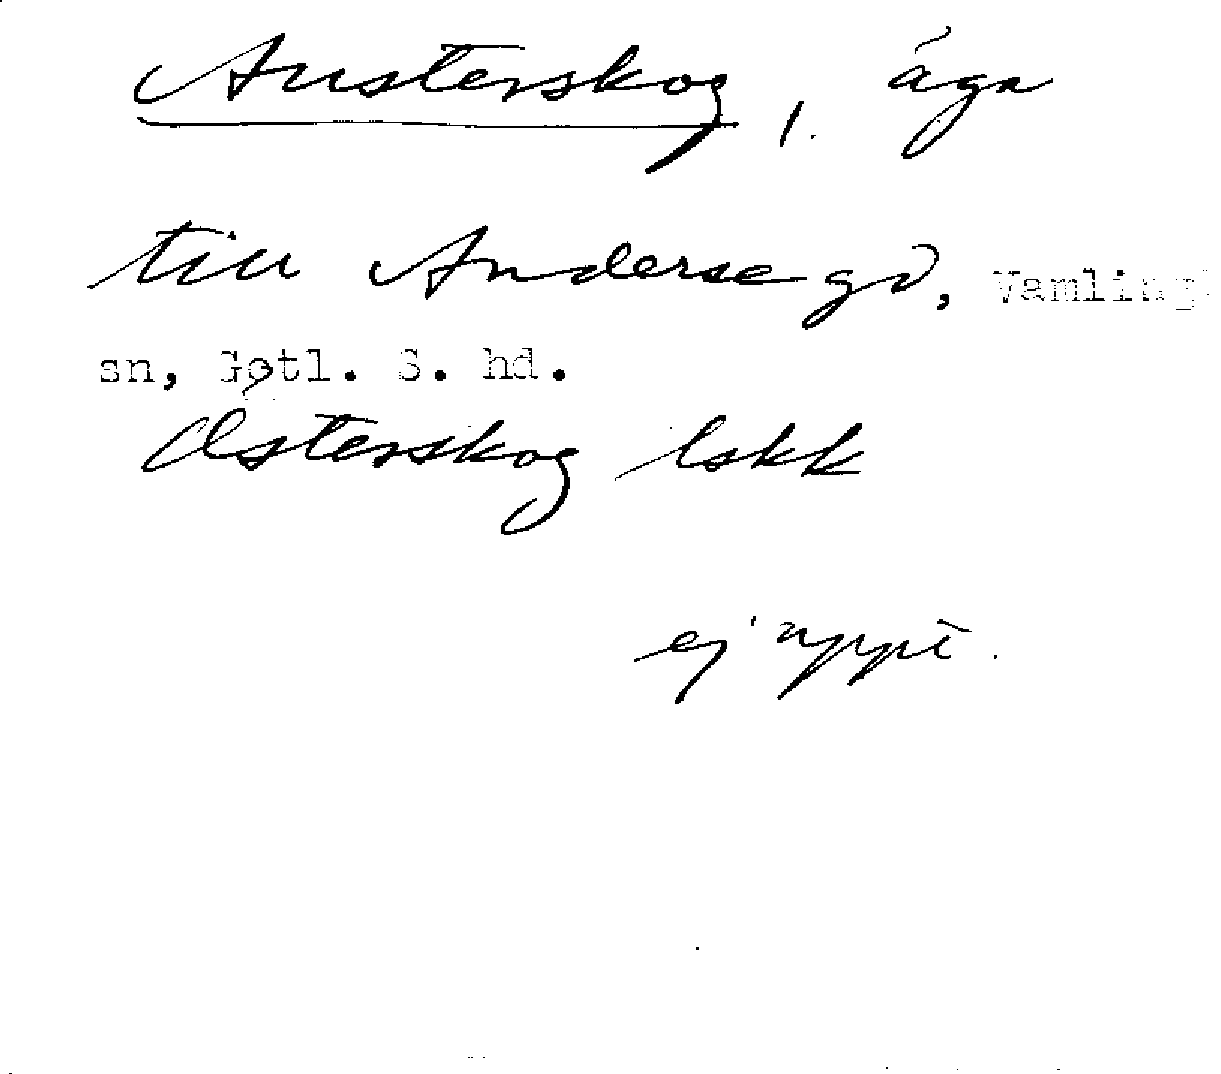 Austerskog, äga
till Anderse gd, Vamlingb
sn, Gotl. S. hd.
Österskog lskk
ej uppt.